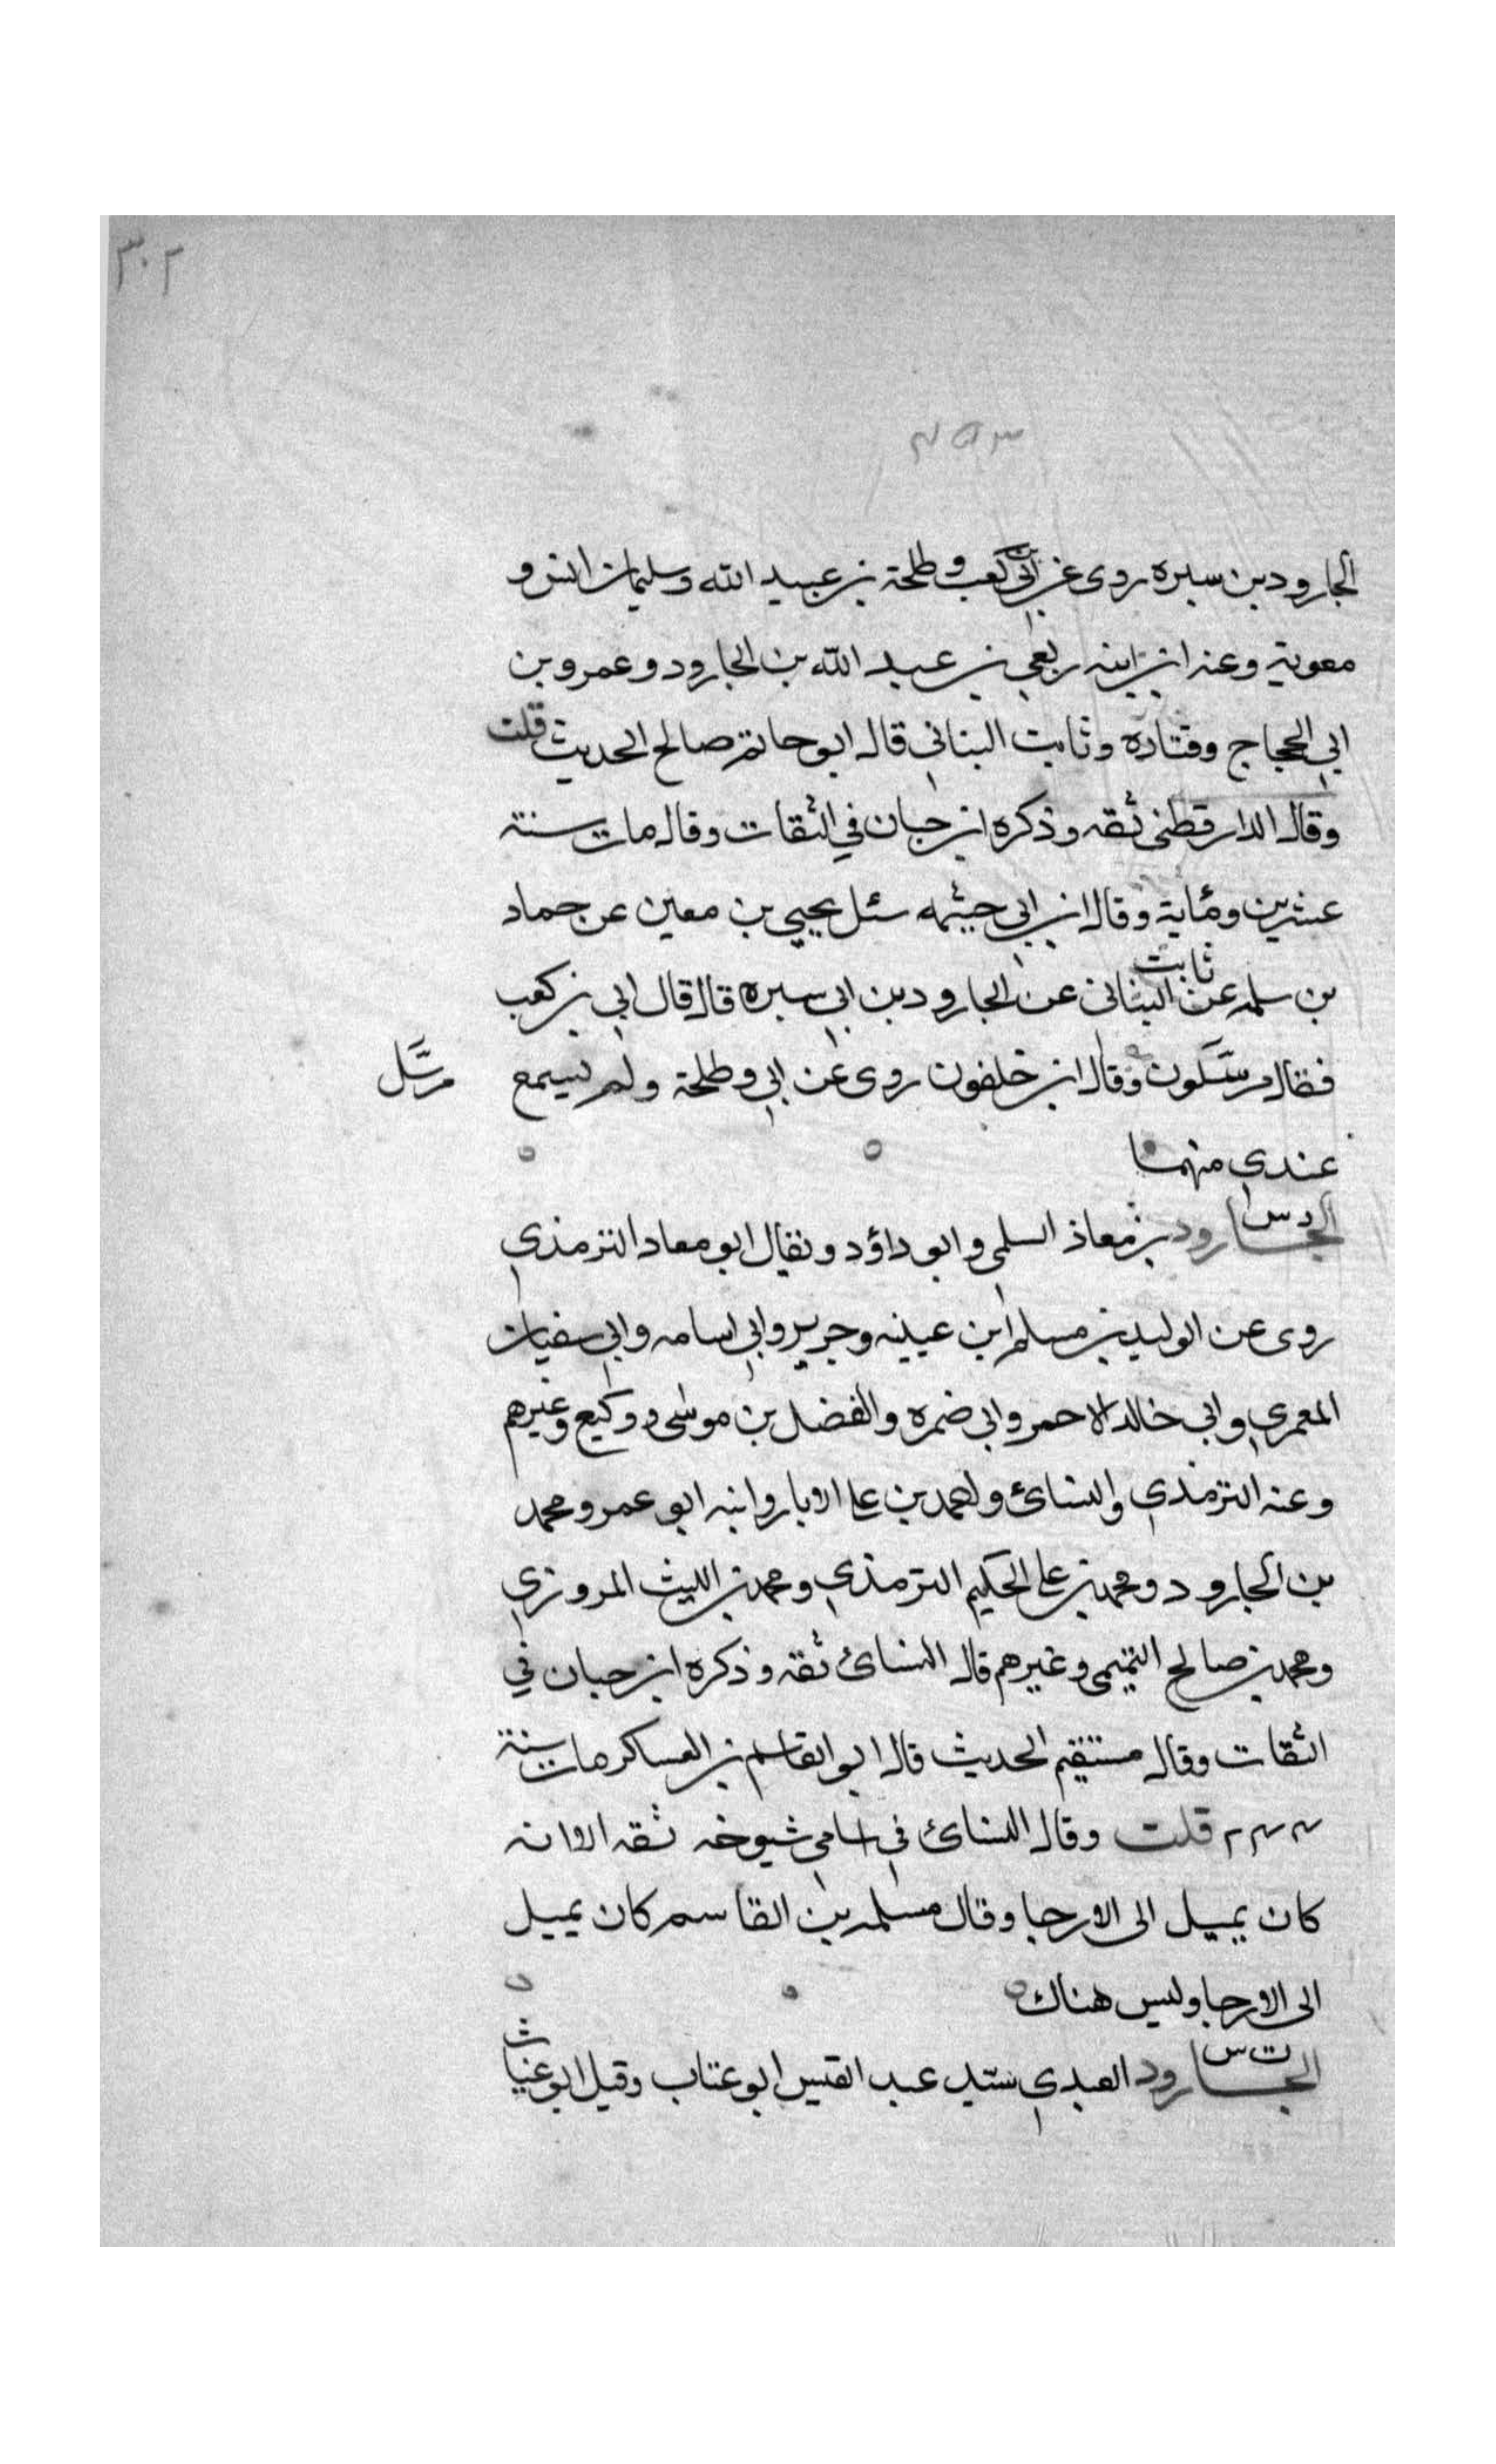 ٣٠٢
الجارود بن سبره روى عن ابي بن كعب و طلحة بن عبيد الله وسليمان انس و
معوية وعنه ابن ابنه ربعي بن عبد الله بن الجارود وعمرو بن
ابي الحجاج وقتاده وثابت البناني قال ابو حاتم صالح الحديث قلت
وقال الدارقطنى ثقه وذكره ابن حبان في الثقات وقال مات سنة
عشرين ومئاية وقال ابن ابي حيثمه سئل يحيي بن معين عن حماد
بن سلمه عن ثابت البناني عن الجارود بن ابي سبره قال قال ابي بن كعب
فقال مرسلون وقال ابن خلفون روى عن ابي وطلحة ولم يسمع
مرسل
عندي منهما
د س
الجارود بن معاذ السلمى وابو داؤد ويقال ابو معاد الترمذي
روى عن الوليد بن مسلم ابن عيينه وجرير وابي اسامه وابي سفيان
المعمري وابي خالد الاحمر وابي ضمره والفضل بن موسى ووكيع وغيرهم
وعنه الترمذي والنسائ واحمد بن على الابار وابنه ابو عمرو محمد
بن الجارود ومحمد بن على الحكيم الترمذي ومحمد بن الليث المروزي
ومحمد بن صالح التميمى وغيرهم قال النسائ ثقه وذكره ابن حبان في
الثقات وقال مستقيم الحديث قال ابو القاسم بن العساكر مات سنة
٢٤٤ قلت وقال النسائ في اسامى شيوخه ثقه الا انه
كان يميل الى الارجا وقال مسلمه بن القاسم كان يميل
الى الارجا وليس هناك
ت س
الجارود العبدي سيد عبد القيس ابو عتاب وقيل ابو غياث